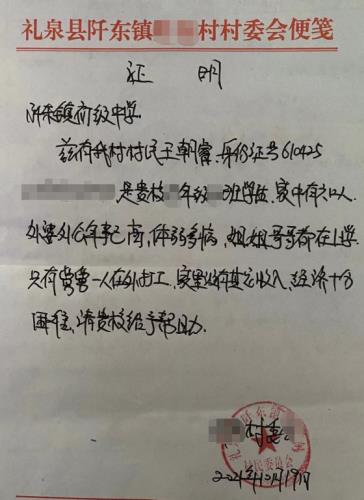 礼泉县阡东镇村村委会便笺
证明
阡东镇初级中学:
兹有我村村民王朝睿,身份证号610425
是贵校年级班学生,家中有六口人,
外婆外公年事已高,体弱多病,姐姐哥哥都在上学,
只有爸爸一人在外打工,家里没有其它收入,经济十分
困难,请贵校给予帮助.
村委
礼阡东镇
村民委员会
2021年10月19日